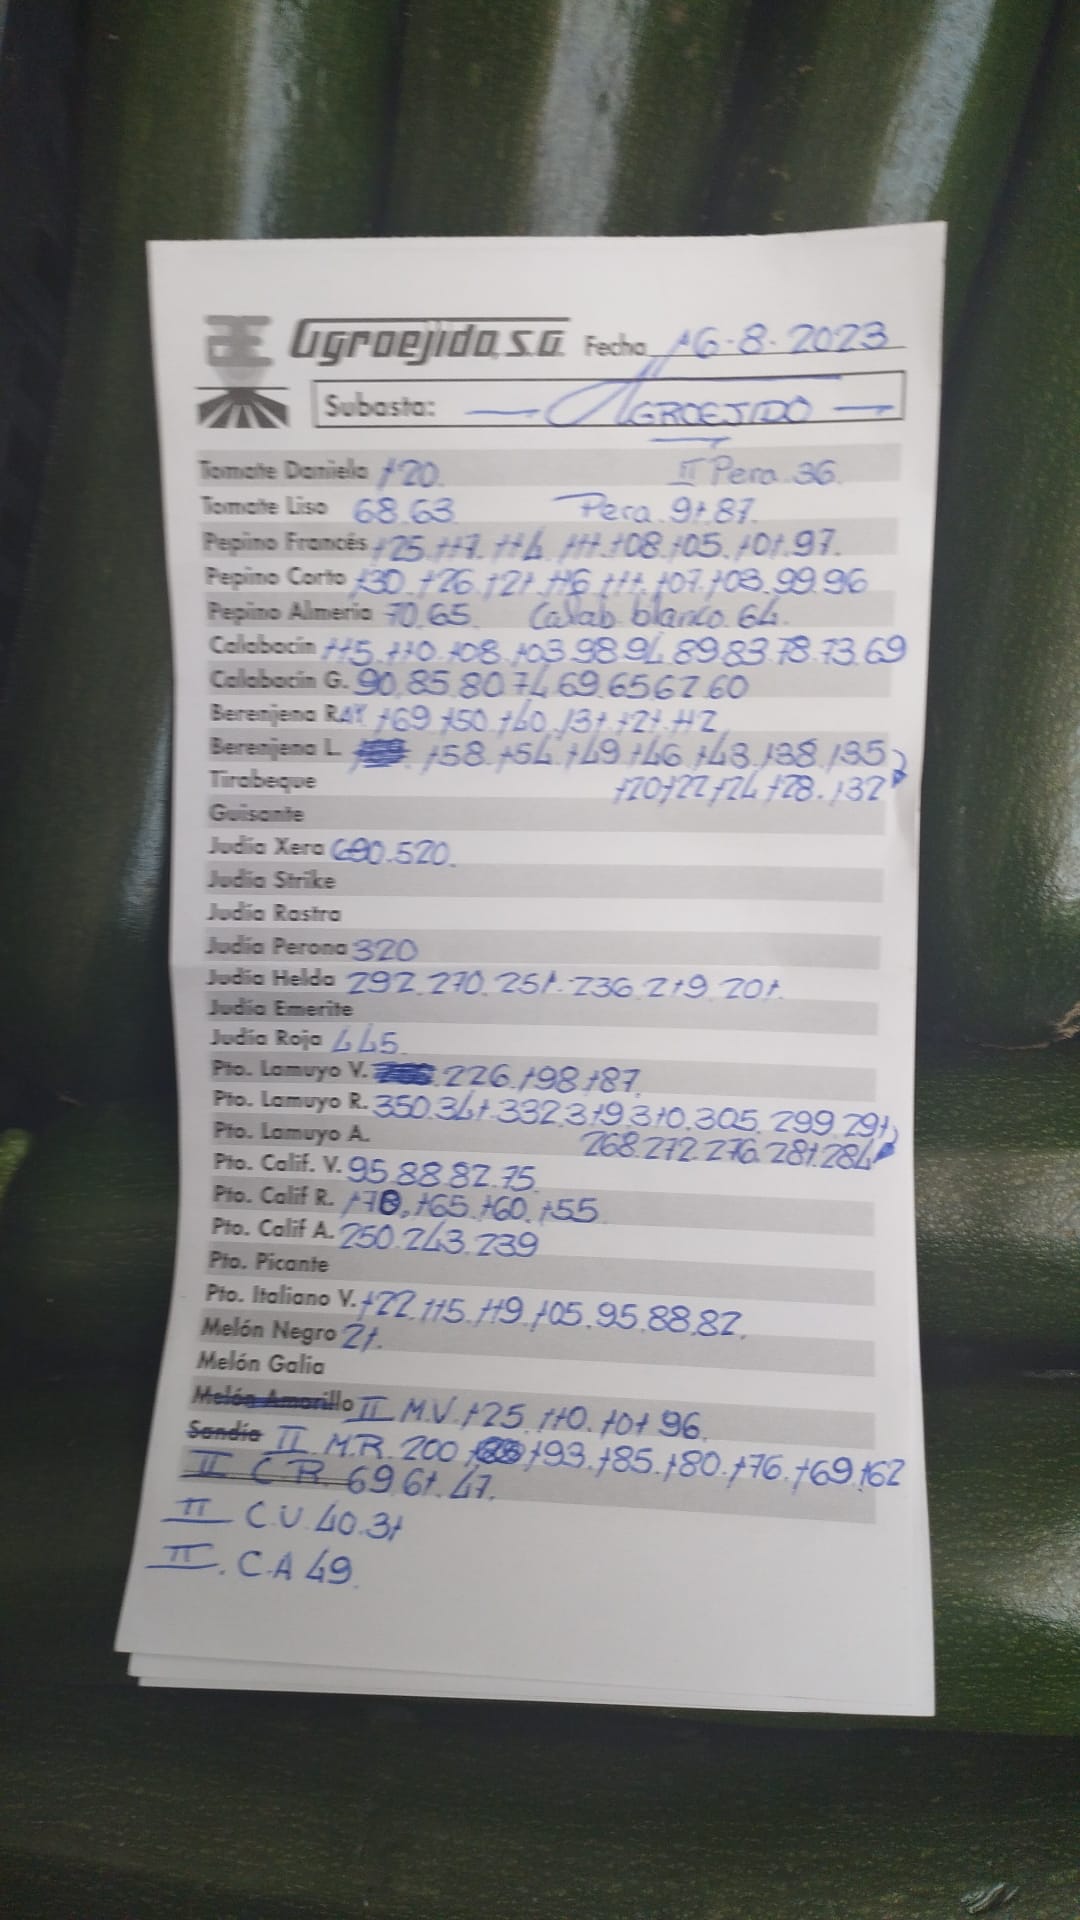 Agroejido, S.A. Fecha 16-8-2023
Subasta: AGROEJIDO
Tomate Daniela 120. II Pera 36.
Tomate Liso 68.63 Pera 91.87.
Pepino Francés 125.117.114.111.108.105.101.97.
Pepino Corto 130.126.121.116.111.107.103.99.96
Pepino Almería 70.65. Calab blanco 64.
Calabacín 115.110.108.103.98.94.89.83.78.73.69
Calabacín G. 90.85.80.74.69.65.62.60
Berenjena RAY 169.150.140.131.121.112
Berenjena L. 158.154.149.146.143.138.135
Tirabeque 120.122.124.128.132
Guisante
Judía Xera 690.520.
Judía Strike
Judía Rastra
Judía Perona 320
Judía Helda 292.270.251.236.219.201.
Judía Emerite
Judía Roja 445.
Pto. Lamuyo V. 226.198.187.
Pto. Lamuyo R. 350.341.332.319.310.305.299.291
Pto. Lamuyo A. 268.272.276.281.284
Pto. Calif. V. 95.88.82.75.
Pto. Calif R. 170.165.160.155
Pto. Calif A. 250.243.239
Pto. Picante
Pto. Italiano V. 122.115.119.105.95.88.82.
Melón Negro 21.
Melón Galia
Melón Amarillo II M.V. 125.110.101 96.
Sandía II M.R. 200 193.185.180.176.169.162
II C R. 69.61.47.
II C.V. 40.31
II. C.A 49.